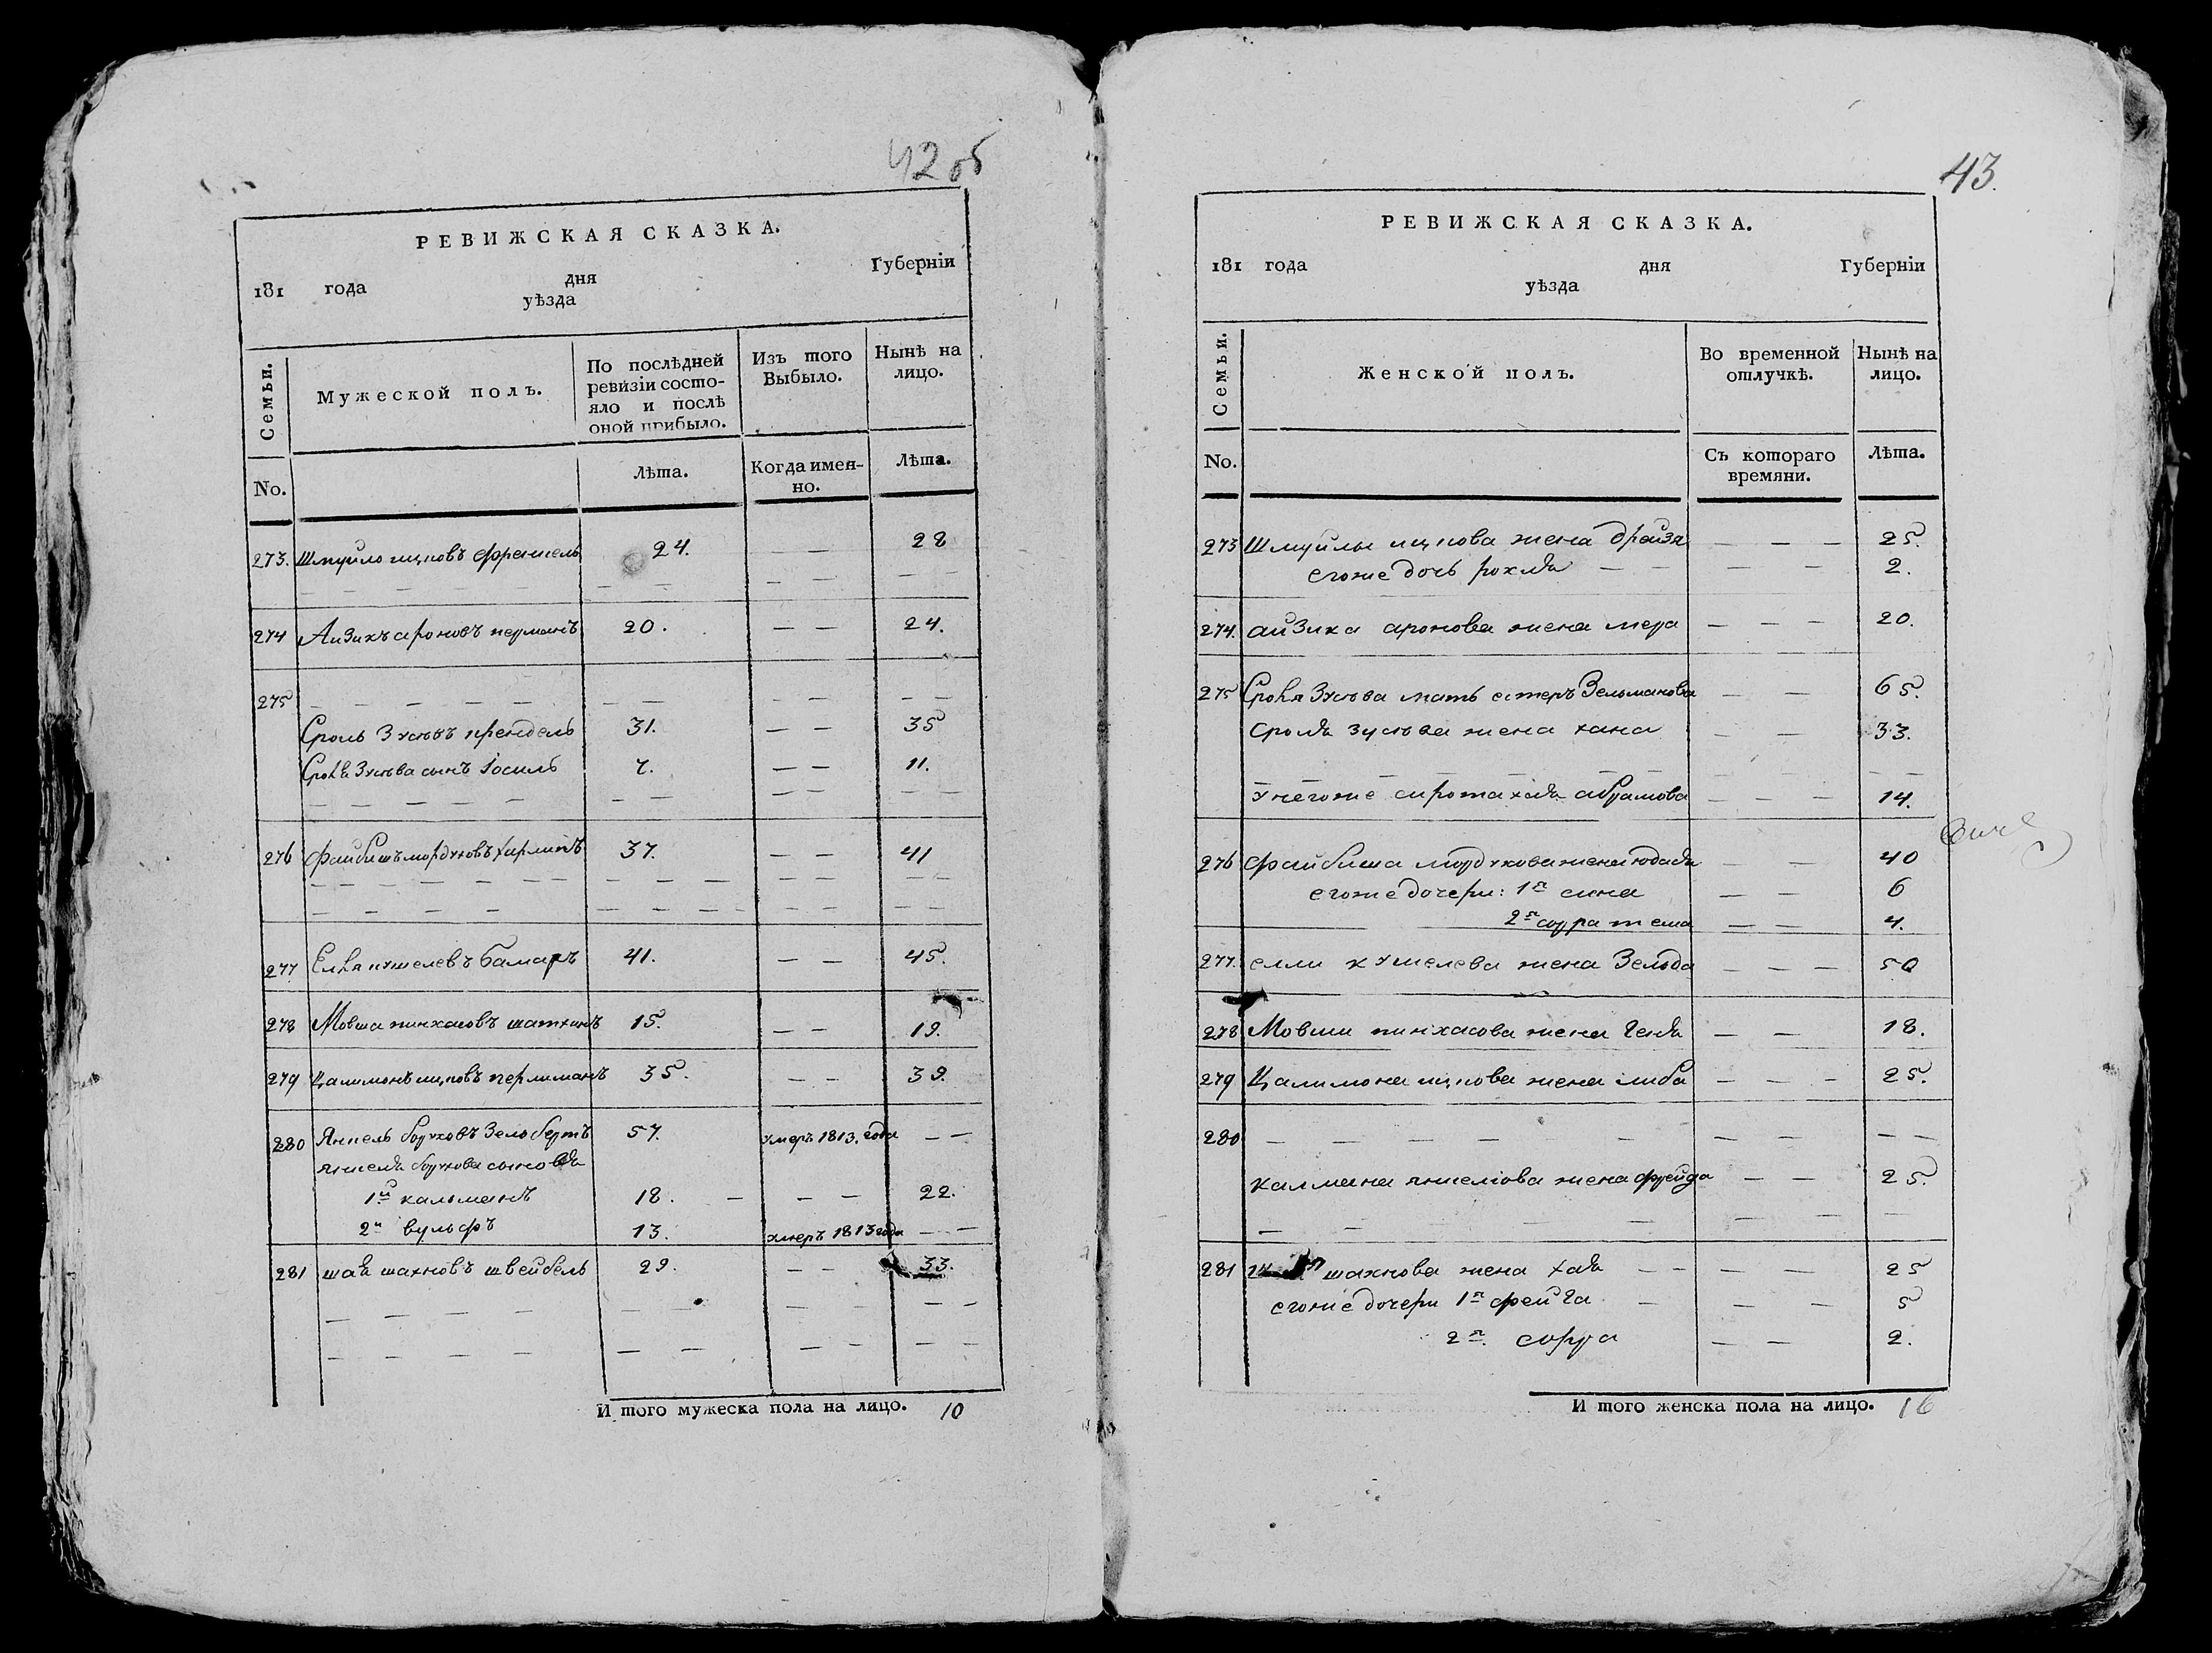 42 об
РЕВИЖСКАЯ СКАЗКА.
181 года дня Губерніи
уѣзда
Семьи. Мужеской полъ. По послѣдней ревизіи состо- яло и послѣ оной прибыло. Изъ того Выбыло. Нынѣ на лицо.
No. Лѣта. Когда имен- но. Лѣта.
273. Шмуйло ицковъ 24. — — 28
274 Айзикъ ароновъ 20. — — 24.
275 — — — — — — — — — — —
Сроль Зусевъ прендель 31. — — 35
Сроля Зусева сынъ Іосиль 7. — — 11.
276 Файбишъ мордуховъ 37. — — 41
277 Еля кушелевъ 41. — — 45.
278 Мовша пинхасовъ 15. — — 19.
279 Цалимонъ ицковъ перлиманъ 35. — — 39.
280 Янкель боруховъ 57. умеръ 1813. года — —
янкеля борухова сыновья
1й кальманъ 18. — — — 22.
2й вульфъ 13. умеръ 1813 года — —
281 шая шахновъ швейбель 29. — — 33.
И того мужеска пола на лицо. 10
43.
РЕВИЖСКАЯ СКАЗКА.
181 года дня Губерніи
уѣзда
Семьи. Женской полъ. Во временной отлучкѣ. Нынѣ на лицо.
No. Съ котораго времяни. Лѣта.
273 Шмуйлы ицкова жена — — — 25.
егоже дочь рохля — — — — 2.
274. айзика аронова жена мера — — — 20.
275 Сроля Зусева мать естеръ Зельманова — — 65.
сроля зусева жена хана — — 33.
У негоже сирота хая абрамова — — — 14.
276 файбиша мордухова жена — — 40
егоже дочери: 1я — — 6
2я — — 4.
277. елии кушелева жена Зельда — — — 50
278 Мовши пинхасова жена геня — — 18.
279 Цалимона ицкова жена либа — — — 25.
280 — — — — — — — — — —
калмана янкелиова жена фрейда — — 25.
281 шахнова жена хая — — — — — 25
егоже дочери 1я фейга — — — 5
2я. сорра — — 2.
И того женска пола на лицо. 16